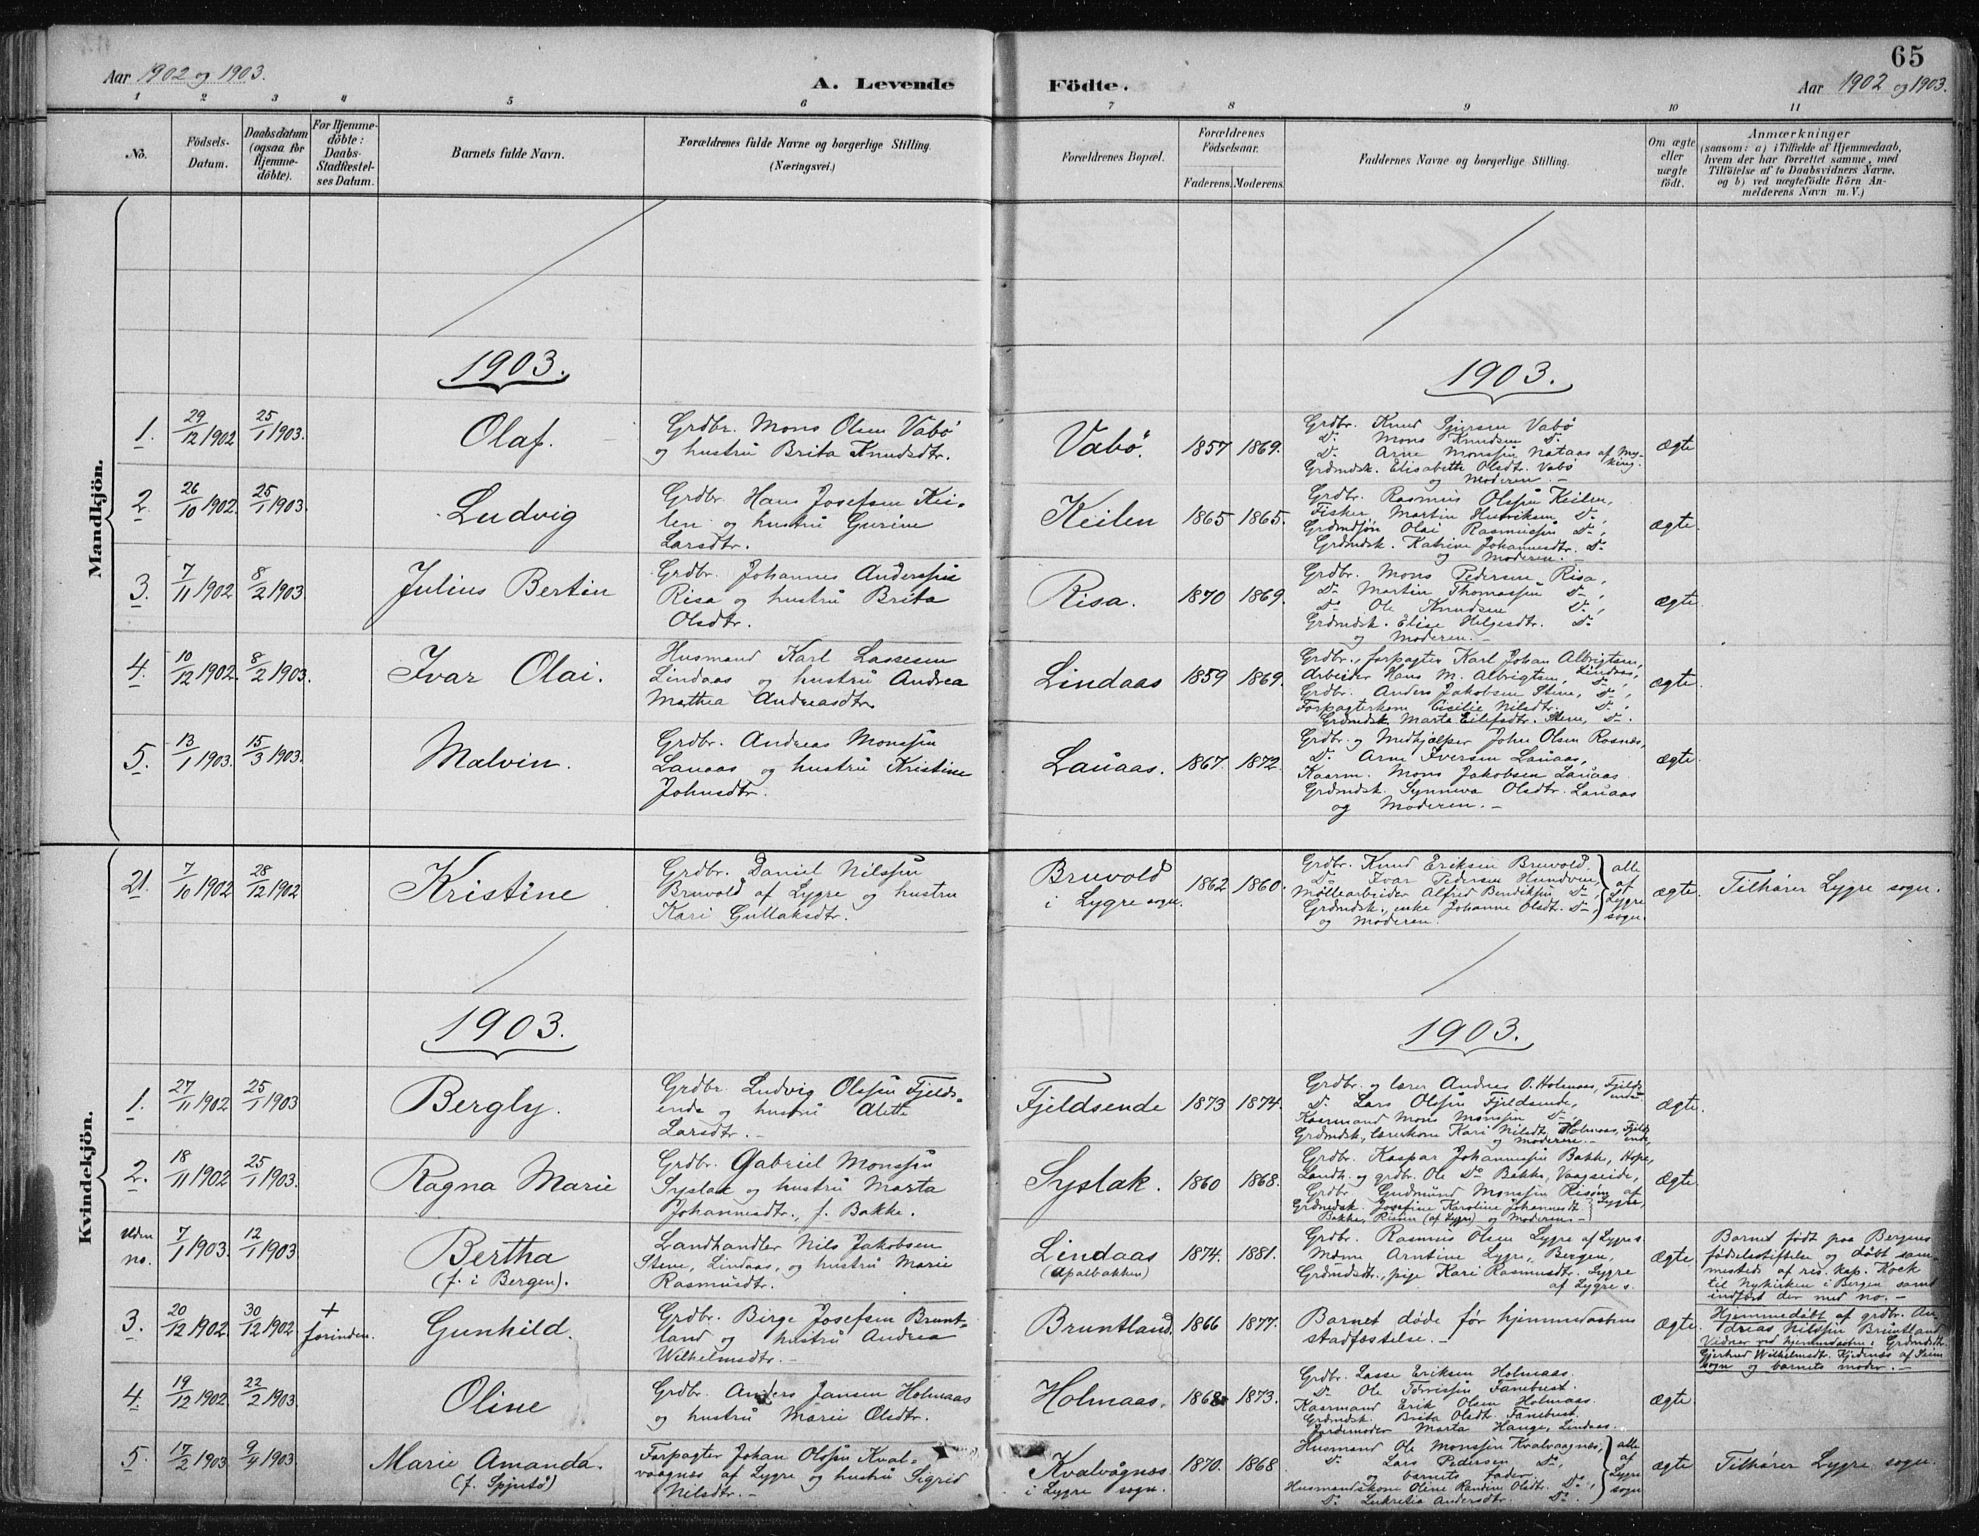 65
Aar 1902 og 1903.
A. Levende
Födte.
Aar 1902 og 1903.
1 2 3 4 5 6 7 8 9 10 11
No.
Födsels-
Datum.
Daabsdatum
(ogsaa for
Hjemme-
döbte).
For Hjemme-
döbte:
Daabs-
Stadfæstel-
ses Datum.
Barnets fulde Navn.
Forældrenes fulde Navne og borgerlige Stilling.
(Næringsvei.)
Forældrenes Bopæl.
Forældrenes
Födselsaar.
Faderens. Moderens.
Faddernes Navne og borgerlige Stilling.
Om ægte
eller
uægte
födt.
Anmærkninger
(saasom: a) i Tilfælde af Hjemmedaab,
hvem der har forrettet samme, med
Tilföielse af to Daabsvidners Navne,
og b) ved uægtefödte Börn An-
melderens Navn m. V.)
Mandkjön.
1903.
1903.
1. 29/12 1902 25/1 1903. Olaf.
Grdbr. Mons Olsen Vabö
og hustru Brita Knudsdtr.
Vabö. 1857 1869.
Grdbr. Knud Vabö
Do Mons Knudsen Do
Do Arne Monssen Nataas af My-
king.
Grdmdsk. Elisabeth Olsdt. Vabö
og Moderen. -
ægte
2. 26/10 1902. 25/1 1903. Ludvig
Grdbr. Hans Josefsen Kei-
len og hustru Gurine
Larsdtr.
Keilen 1865 1865.
Grdbr. Rasmus Olssen Keilen,
Fisker Martin Henriksen Do,
Grdmdsön Olai Rasmussen Do,
Grdmdsk. Katrine Johannesdtr. Do
og Moderen. -
ægte.
3. 7/11 1902 8/2 1903 Julius Bertin
Grdbr. Johannes Anderssen
Risa og hustru Brita
Olsdtr.
Risa. 1870 1869.
Grdbr. Mons Pedersen Risa,
Do Martin Thomassen Do,
Do Ole Knudsen Do,
Grdmdsk. Elise Helgesdtr. Do
og Moderen. -
ægte
4. 10/12 1902. 8/2 1903. Ivar Olai.
Husmand Karl Lassesen
Lindaas og hustru Andrea
Mathea Andreasdtr.
Lindaas 1859 1869.
Grdbr., forpagter Karl Johan Albrigtsen,
Arbeider Hans M. Albrigtsen, Lindaas,
Grdbr. Anders Jakobsen Stene, Do,
Forpagterkone Cecilie Nilsdtr. Do,
Grdmdsk. Marta Eilefsdtr. Stene, Do.
ægte.
5. 13/1 1903. 15/3 1903. Malvin.
Grdbr. Andreas Monssen
Lauaas og hustru Kristine
Johnsdtr.
Lauaas. 1867. 1872.
Grdbr. og Medhjælper John Olsen Rosnes,
Do Arne Iversen Lauaas,
Kaarm. Mons Jakobsen Lauaas
Grdmdsk. Synneva Olsdtr. Lauaas
og Moderen. -
ægte.
Kvindekjön.
21. 7/10 1902 28/12 1902 Kristine
Grdbr. Daniel Nilssen
Bruvold af Lygre og hustru
Kari Gullaksdtr.
Bruvold
i Lygre sogn. 1862 1860.
Grdbr. Knud Eriksen Bruvold
Do Ivar Pedersen Hundven
Möllearbeider Alfred Bendiksen Do
Grdmdsk., enke Johanne Olsdt. Do
og Moderen.
alle
af
Lygre
sogn.
ægte. Tilhører Lygre sogn.
1903.
1903.
1. 27/11 1902 25/1 1903 Bergly.
Grdbr. Ludvig Olssen Fjelds-
ende og hustru Alette
Larsdtr. -
Fjeldsende 1873 1874.
Grdbr. og lærer Andreas O. Holmaas, Fjelds-
ende
Do Lars Olssen Fjeldsende,
Kaarmand Mons Monssen Do,
Grdmdsk., lærerkone Kari Nilsdt. Holmaas, Fjelds-
ende,
og Moderen. -
ægte.
2. 18/11 1902 25/1 1903. Ragna Marie
Grdbr. Gabriel Monssen
Syslak og hustru Marta
Johannesdtr., f. Bakke.
Syslak. 1860 1868.
Grdbr. Kaspar Johannessen Bakke, Hope,
Landh. og grdbr. Ole Do Bakke, Vaageseide,
Grdbr. Gudmund Monssen Risöen af
Lygre,
Grdmdsk. Josefine Karoline Johannesdt.
Bakke, Risöen (af Lygre) og Moderen. -
ægte.
Uden
no. 7/1 1903. 12/1 1903 Bertha
(f. i Bergen).
Landhandler Nils Jakobsen
Stene, Lindaas, og hustru Marie
Rasmusdt.
Lindaas
(Apalbakken) 1874. 1881.
Grdbr. Rasmus Olsen Lygre af Lygre s.
Mdme Arntine Lygre, Bergen,
Grdmdsdt., pige Kari Rasmusdt. Lygre
af Lygre s.
ægte
Barnet født paa Bergens
födselsstiftelse og døbt sam-
mesteds af res. kap. Kock
til Nykirken i Bergen samt
indført der med no. -
3. 20/12 1902. 30/12 1902 + forinden. Gunhild.
Grdbr. Birge Josefsen Brunt-
land og hustru Andrea
Wilhelmsdtr. -
Bruntland 1866 1877.
Barnet døde før hjemmedaabens
stadfæstelse. -
ægte.
Hjemmedøbt af grdbr. An-
dreas Nilssen Bruntland
Vidner ved hjemmedaaben: Grdmdsdt.
Gjertrud Wilhelmsdt. af Seim
sogn og barnets moder. -
4. 19/12 1902. 22/2 1903. Oline
Grdbr. Anders Jansen Holmaas
og hustru Marie Olsdtr.
Holmaas. 1868 1873.
Grdbr. Lasse Eriksen Holmaas.
Do Ole Tørrissen Fanebust.
Kaarmand Erik Olsen Holmaas.
Grdmdsk. Brita Olsdt. Fanebust.
Jordemoder Marta Hauge, Lindaas.
ægte.
5. 17/2 1903 9/4 1903 Marie Amanda.
(f. Spjutö)
Forpagter Johan Olssen Kval-
vaagnes af Lygre og hustru Sigrid
Nilsdtr. -
Kvalvågnes
i Lygre sogn. 1870. 1868
Husmand Ole Monssen Kvalvaagnes,
Do Lars Pedersen Do,
og barnets fader.
Husmandskone Oline Randine Olsdt. Do,
Do Lukretia Andersdtr. Do.
alle
af
Lygre
sogn
ægte Tilhører Lygre sogn.